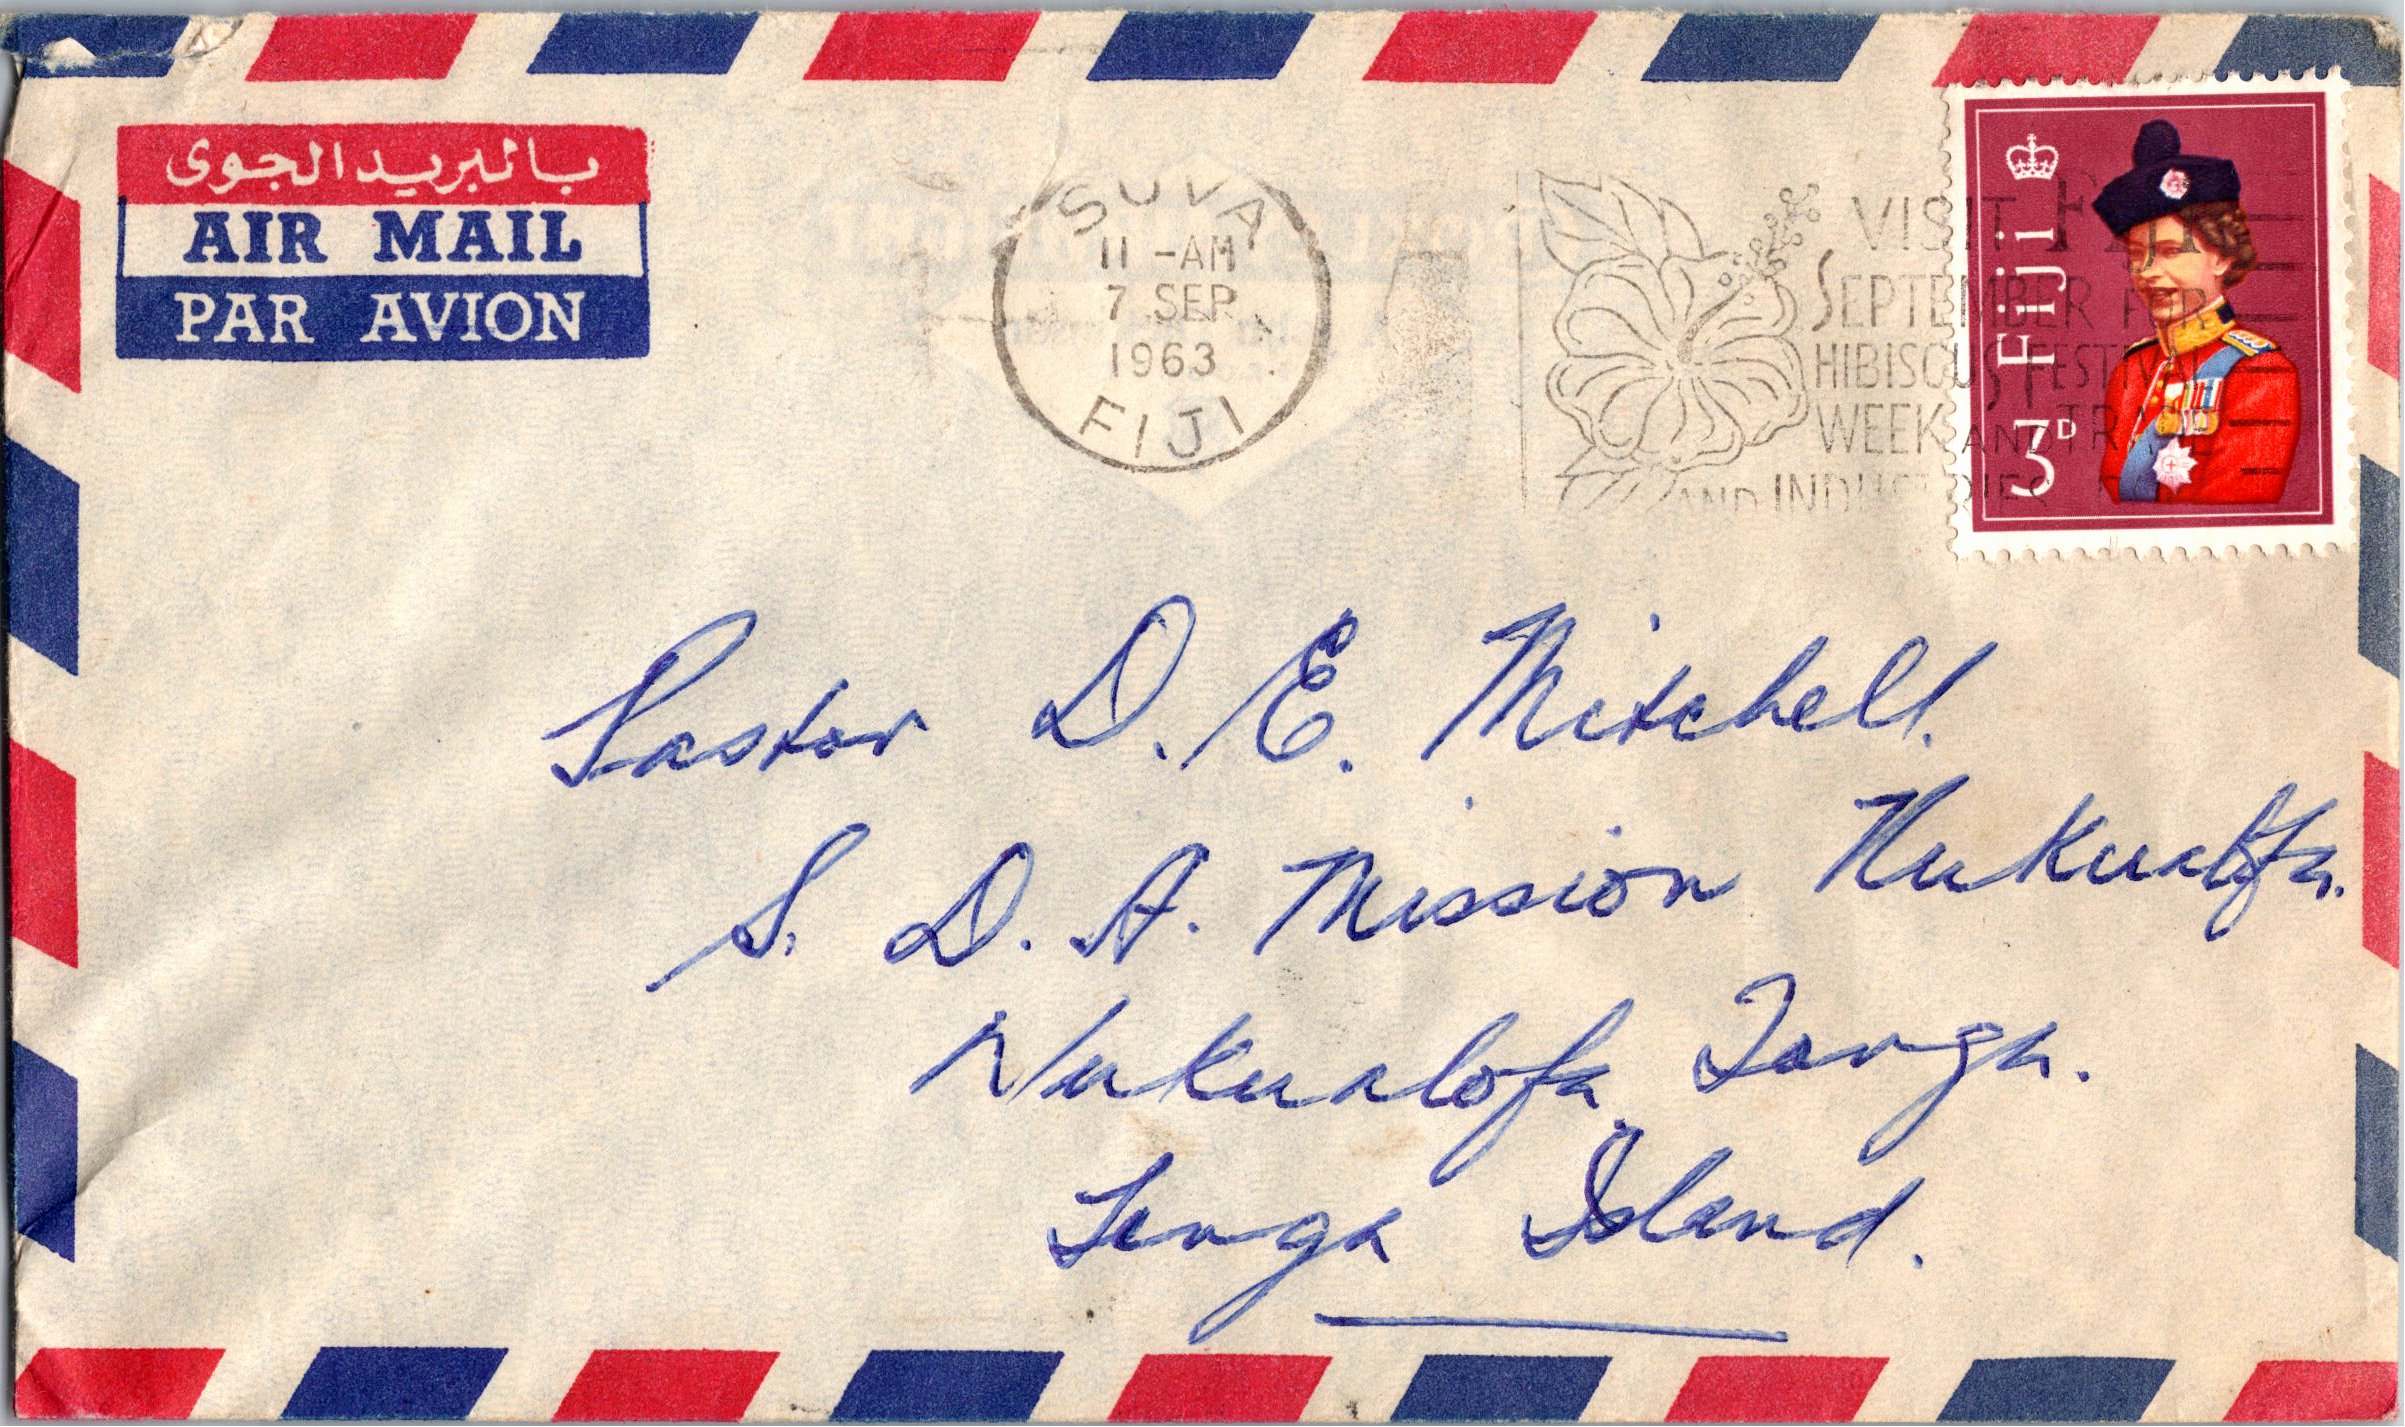 بالبريد الجوى
AIR MAIL
PAR AVION
SUVA
11 -AM
7 SEP
1963
FIJI
VISIT FIJI
SEPTEMBER FOR
HIBISCUS FESTIVAL
WEEK AND TRADE
AND INDUSTRIES
Fiji
3D
Pastor D. E. Mitchell.
S. D. A. Mission Nukualofa.
Nukualofa Tonga.
Tonga Island.